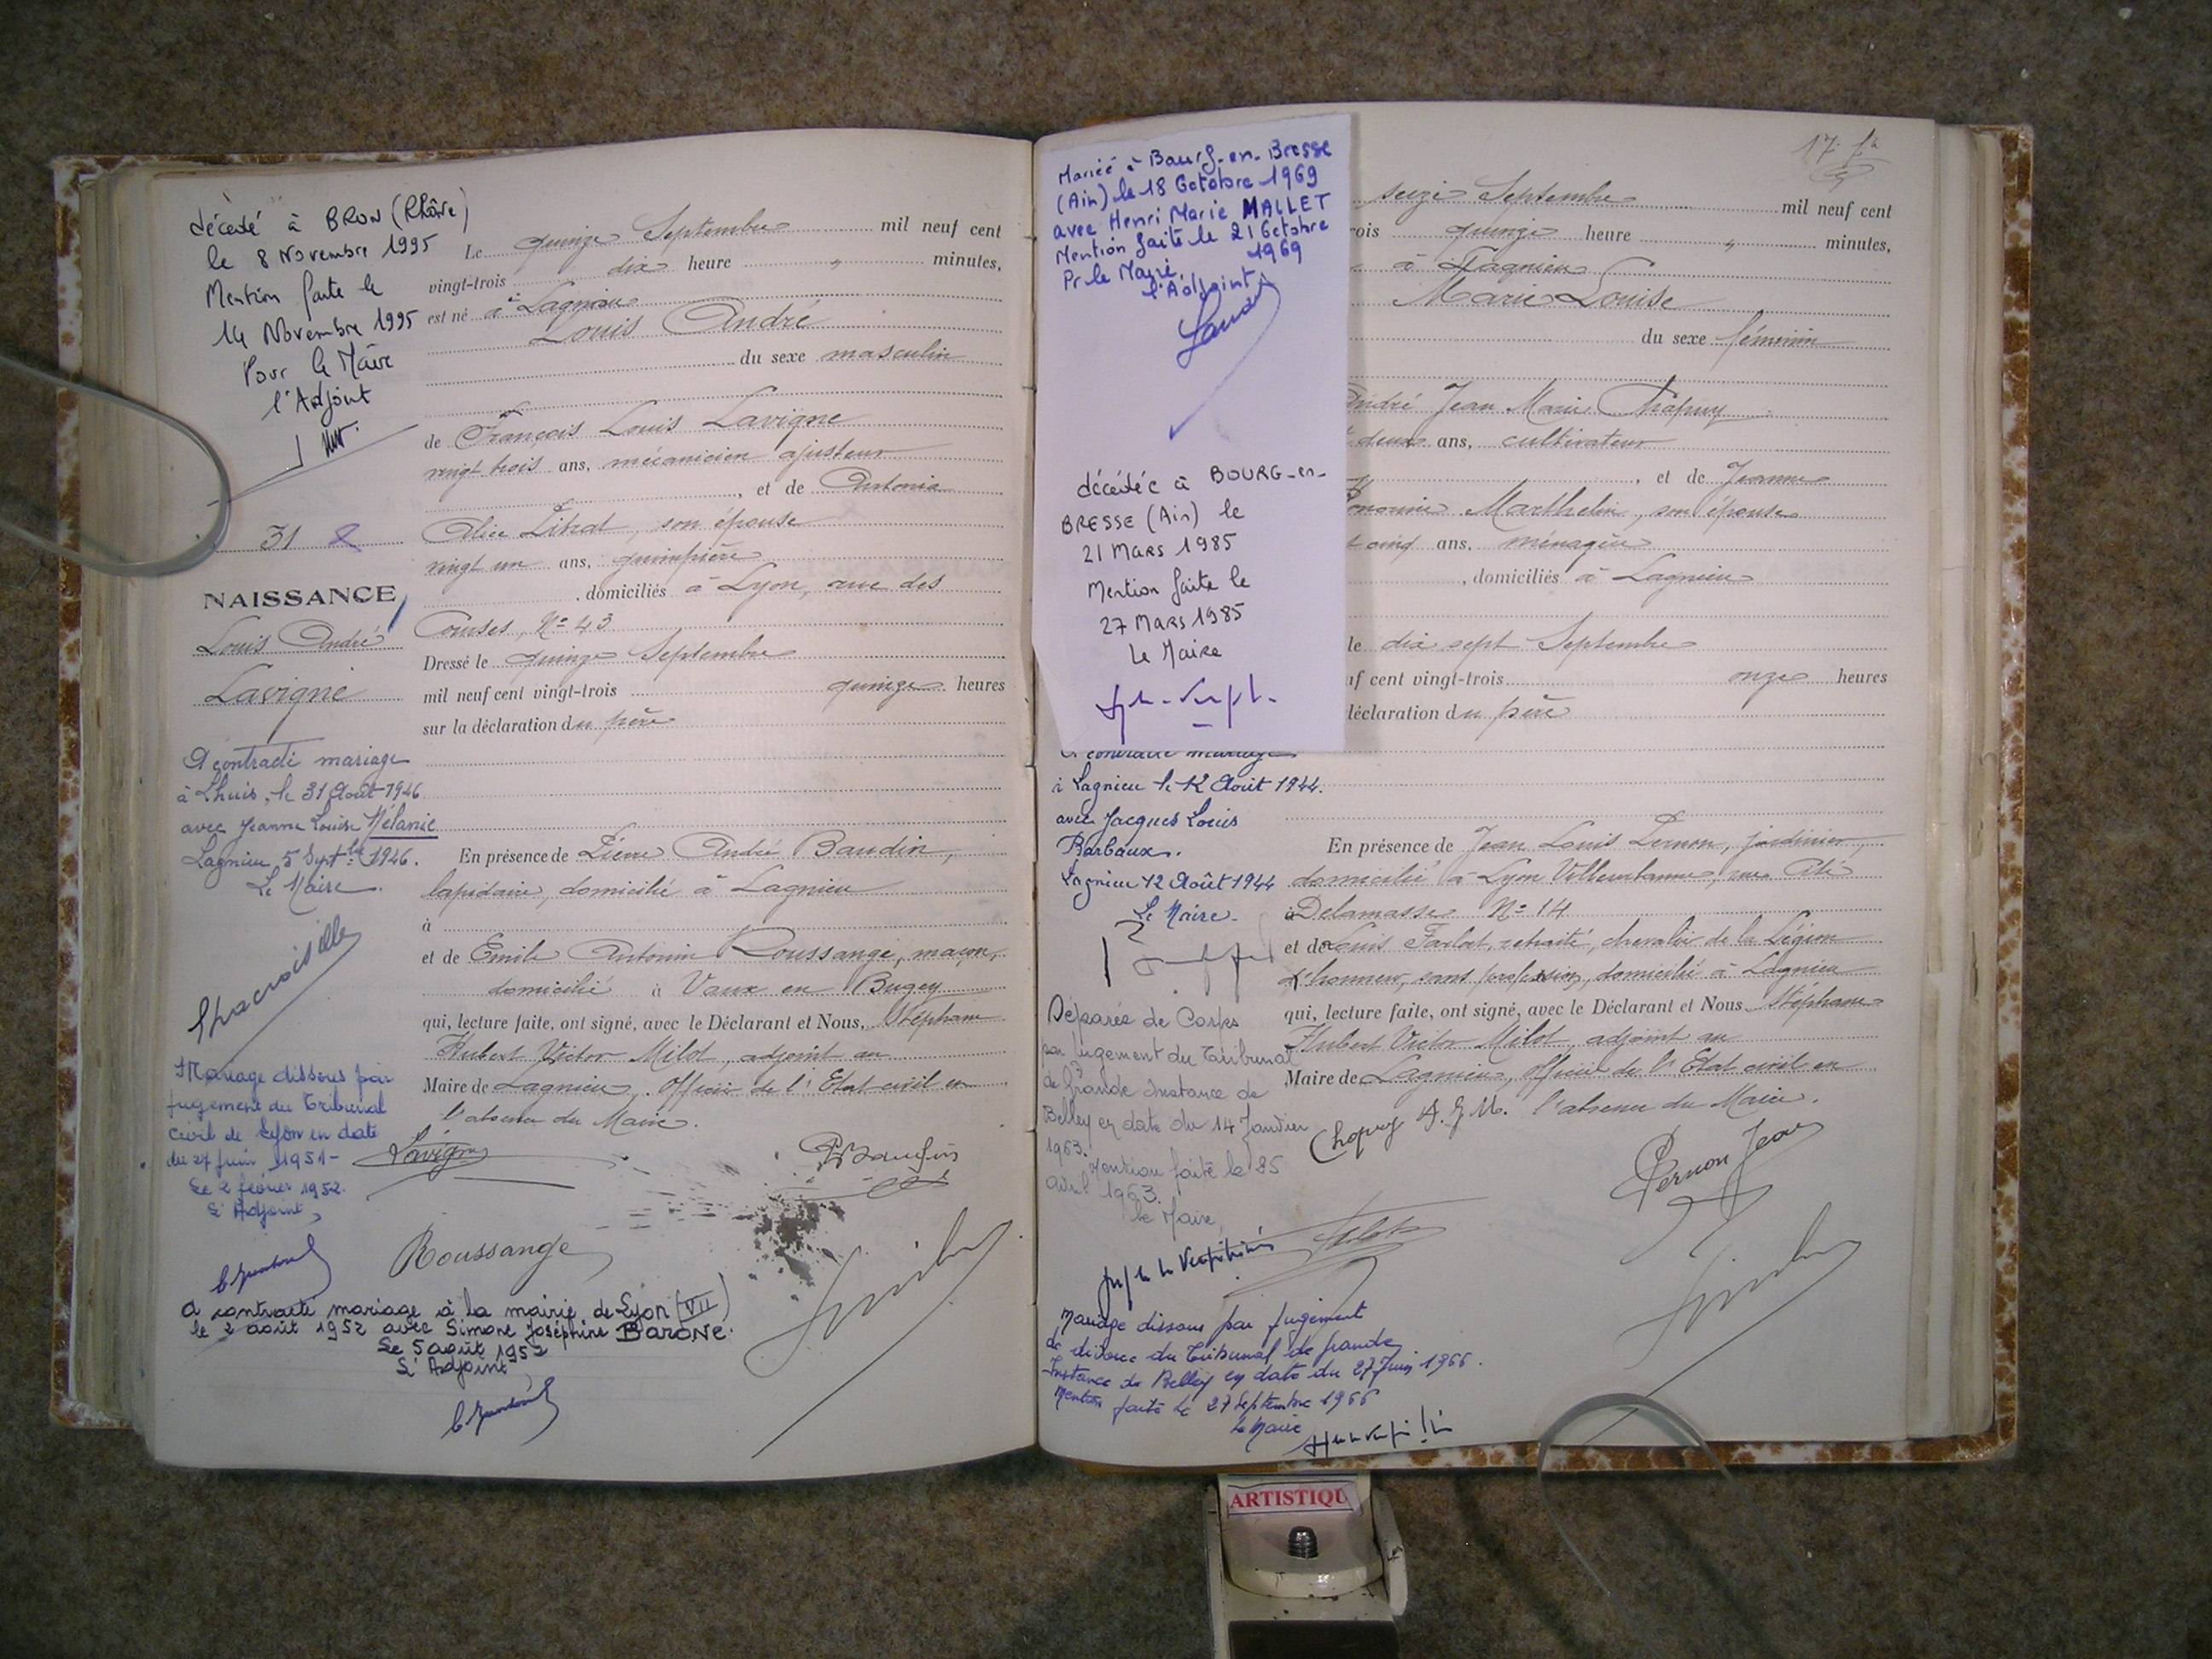 décédé à BRON (Rhône)
le 8 Novembre 1995
Mention faite le
14 Novembre 1995
Pour le Maire
l'Adjoint
31
NAISSANCE
Louis André
Lavigne
A contracté mariage
à Lhuis, le 31 Août 1946
avec Jeanne Louise Mélanie
Lagnieu, 5 Septbre 1946.
Le Maire.
Mariage dissous par
jugement du Tribunal
civil de Lyon en date
du 27 juin 1951-
Le 2 février 1952.
L'Adjoint,
Le quinze Septembre mil neuf cent
vingt-trois dix heure " minutes,
est né à Lagnieu
Louis André
du sexe masculin
de François Louis Lavigne
vingt trois ans, mécanicien ajusteur
, et de Antonia
Alice , son épouse
vingt un ans, guimpière
, domiciliés à Lyon, rue des
Courses, No 43
Dressé le quinze Septembre
mil neuf cent vingt-trois quinze heures
sur la déclaration du père
En présence de Pierre André Baudin,
lapidaire, domicilié à Lagnieu
à
et de Emile Antonin Roussange, maçon,
domicilié à Vaux en Bugey
qui, lecture faite, ont signé, avec le Déclarant et Nous, Stéphane
Hubert Victor Milot, adjoint au
Maire de Lagnieu, Officier de l'Etat civil en
l'absence du Maire.
Lavigne
Roussange
A contracté mariage à la mairie de Lyon (VII)
le 2 août 1952 avec Simone Joséphine BARONE.
Le 5 août 1952
L'Adjoint
17
Mariée à Bourg-en-Bresse
(Ain) le 18 Octobre 1969
avec Henri Marie MALLET
Mention faite le 21 Octobre
1969
Pr le Maire,
l'Adjoint
décédée à BOURG-en-
BRESSE (Ain) le
21 Mars 1985
Mention faite le
27 Mars 1985
Le Maire
A contracté mariage
à Lagnieu le 12 Août 1944.
avec Jacques Louis
Barbaux.
Lagnieu 12 Août 1944
Le Maire.
Séparée de Corps
par jugement du Tribunal
de Grande Instance de
Belley en date du 14 Janvier
1963.
Mention faite le 25
avril 1963.
le Maire,
seize Septembre mil neuf cent
rois quinze heure " minutes,
à Lagnieu
Marie Louise
du sexe féminin
André Jean Marie Chapuy
deux ans, cultivateur
, et de Jeanne
Marthelin, son épouse
cinq ans, ménagère
, domiciliés à Lagnieu
le dix sept Septembre
uf cent vingt-trois onze heures
déclaration du père
En présence de Jean Louis Pernon, jardinier,
domicilié à Lyon Villeurbanne, rue Cité
à Delamasse No 14
et de Louis Farlat, retraité, chevalier de la Légion
d'honneur, sans profession, domicilié à Lagnieu
qui, lecture faite, ont signé, avec le Déclarant et Nous, Stéphane
Hubert Victor Milot, adjoint au
Maire de Lagnieu, Officier de l'Etat civil en
l'absence du Maire.
Chapuy A. J. M.
Pernon Jean
Mariage dissous par jugement
de divorce du Tribunal de Grande
Instance de Belley en date du 27 Juin 1966.
Mention faite le 27 Septembre 1966
Le Maire
ARTISTIQU